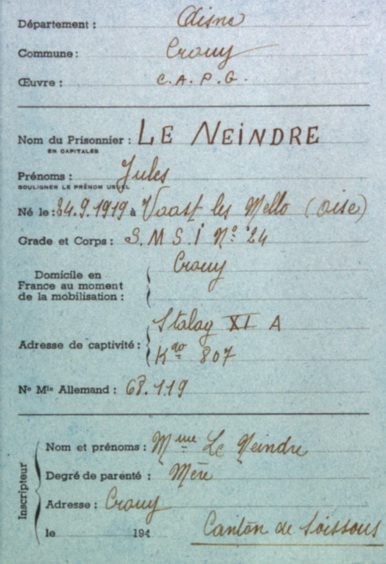 Département : Aisne
Commune : Crouy
Œuvre : C.A.P.G.
Nom du Prisonnier : LE NEINDRE
EN CAPITALES
Prénoms : Jules
SOULIGNER LE PRÉNOM USUEL
Né le : 24.9.1919 à Vaast les Mello (Oise)
Grade et Corps : S.M S.I Nº 24
Domicile en
France au moment
de la mobilisation :
Crouy
Adresse de captivité :
Stalag XI A
Kdo 807
Nº Mle Allemand : 68.119
Inscripteur
Nom et prénoms : Mme Le Neindre
Degré de parenté : Mère
Adresse : Crouy
le 194
Canton de Soissons